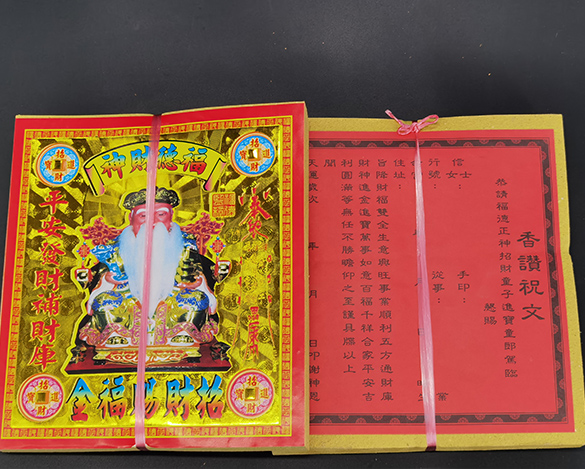 福德財神
招財進寶
招財進寶
平安發財補財庫
招財進寶
招財進寶
招財賜福金
香讚祝文
恭請福德正神招財童子進寶童郎駕臨
懇賜
信士女
手印
行號
從事
業
住址
旨降財福雙全生意興旺事業順利五方通財庫
財神進金進寶萬事如意百福千祥合家平安吉
利圓榮等無任不勝瞻仰之至謹具牒以上
聞
天運歲次 年 月 日叩謝神恩